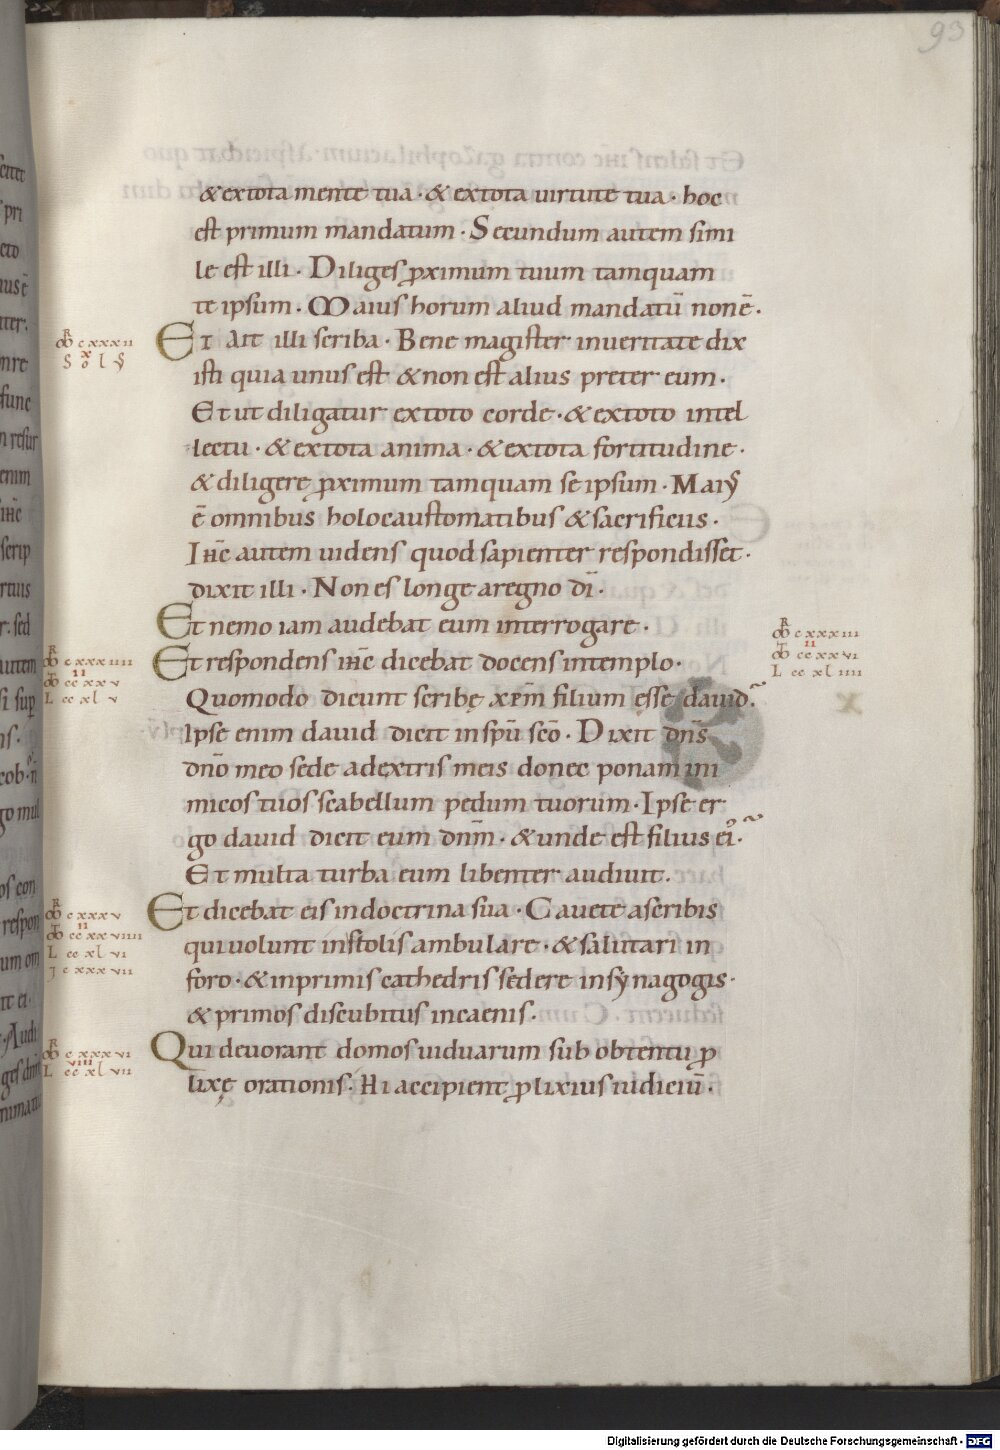 93
& extota mente tua · & extota uirtute tua · hoc
est primum mandatum · Secundum autem simi
le est illi · Diliges pximum tuum tamquam
te ipsum · Maius horum aliud mandatū nonē ·
Et Ait illi scriba · Bene magister inueritate dix
isti quia unus est & non est alius preter eum ·
Et ut diligatur extoto corde · & extoto intel
lectu · & extota anima · & extota fortitudine ·
& diligere pximum tamquam se ipsum · Mai⁹
ē omnibus holocaustomatibus & sacrificiis ·
Ihc autem uidens quod sapienter respondisset ·
dixit illi · Non es longe aregno dī ·
Et nemo iam audebat eum interrogare ·
Et respondens ihc dicebat docens intemplo ·
Quomodo dicunt scribę xpm filium esse dauid ·
Ipse enim dauid dicit inspū scō · Dixit dn̄s
dn̄o meo sede adextris meis donec ponam ini
micos tuos scabellum pedum tuorum · Ipse er
go dauid dicit eum dn̄m · & unde est filius ei⁹ ·
Et multa turba eum libenter audiuit ·
Et dicebat eis indoctrina sua · Cauete ascribis
qui uolunt instolis ambulare · & salutari in
foro · & inprimis cathedris sedere insynagogis ·
& primos discubitus incaenis ·
Qui deuorant domos uiduarum sub obtentu p
lixę orationis · Hi accipient plixius iudiciū ·
c xxxii
c xxxiii
cc xxvi
L cc xl iiii
c xxxiiii
cc xx v
L cc xl v
c xxx v
cc xx viiii
L cc xl vi
J c xxx vii
c xxx vi
L cc xl vii
Digitalisierung gefördert durch die Deutsche Forschungsgemeinschaft - DFG